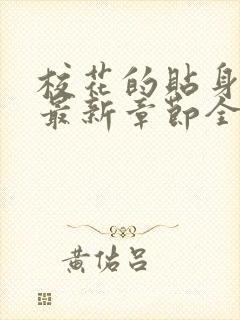 校花的貼身
最新章節全
黃佑呂